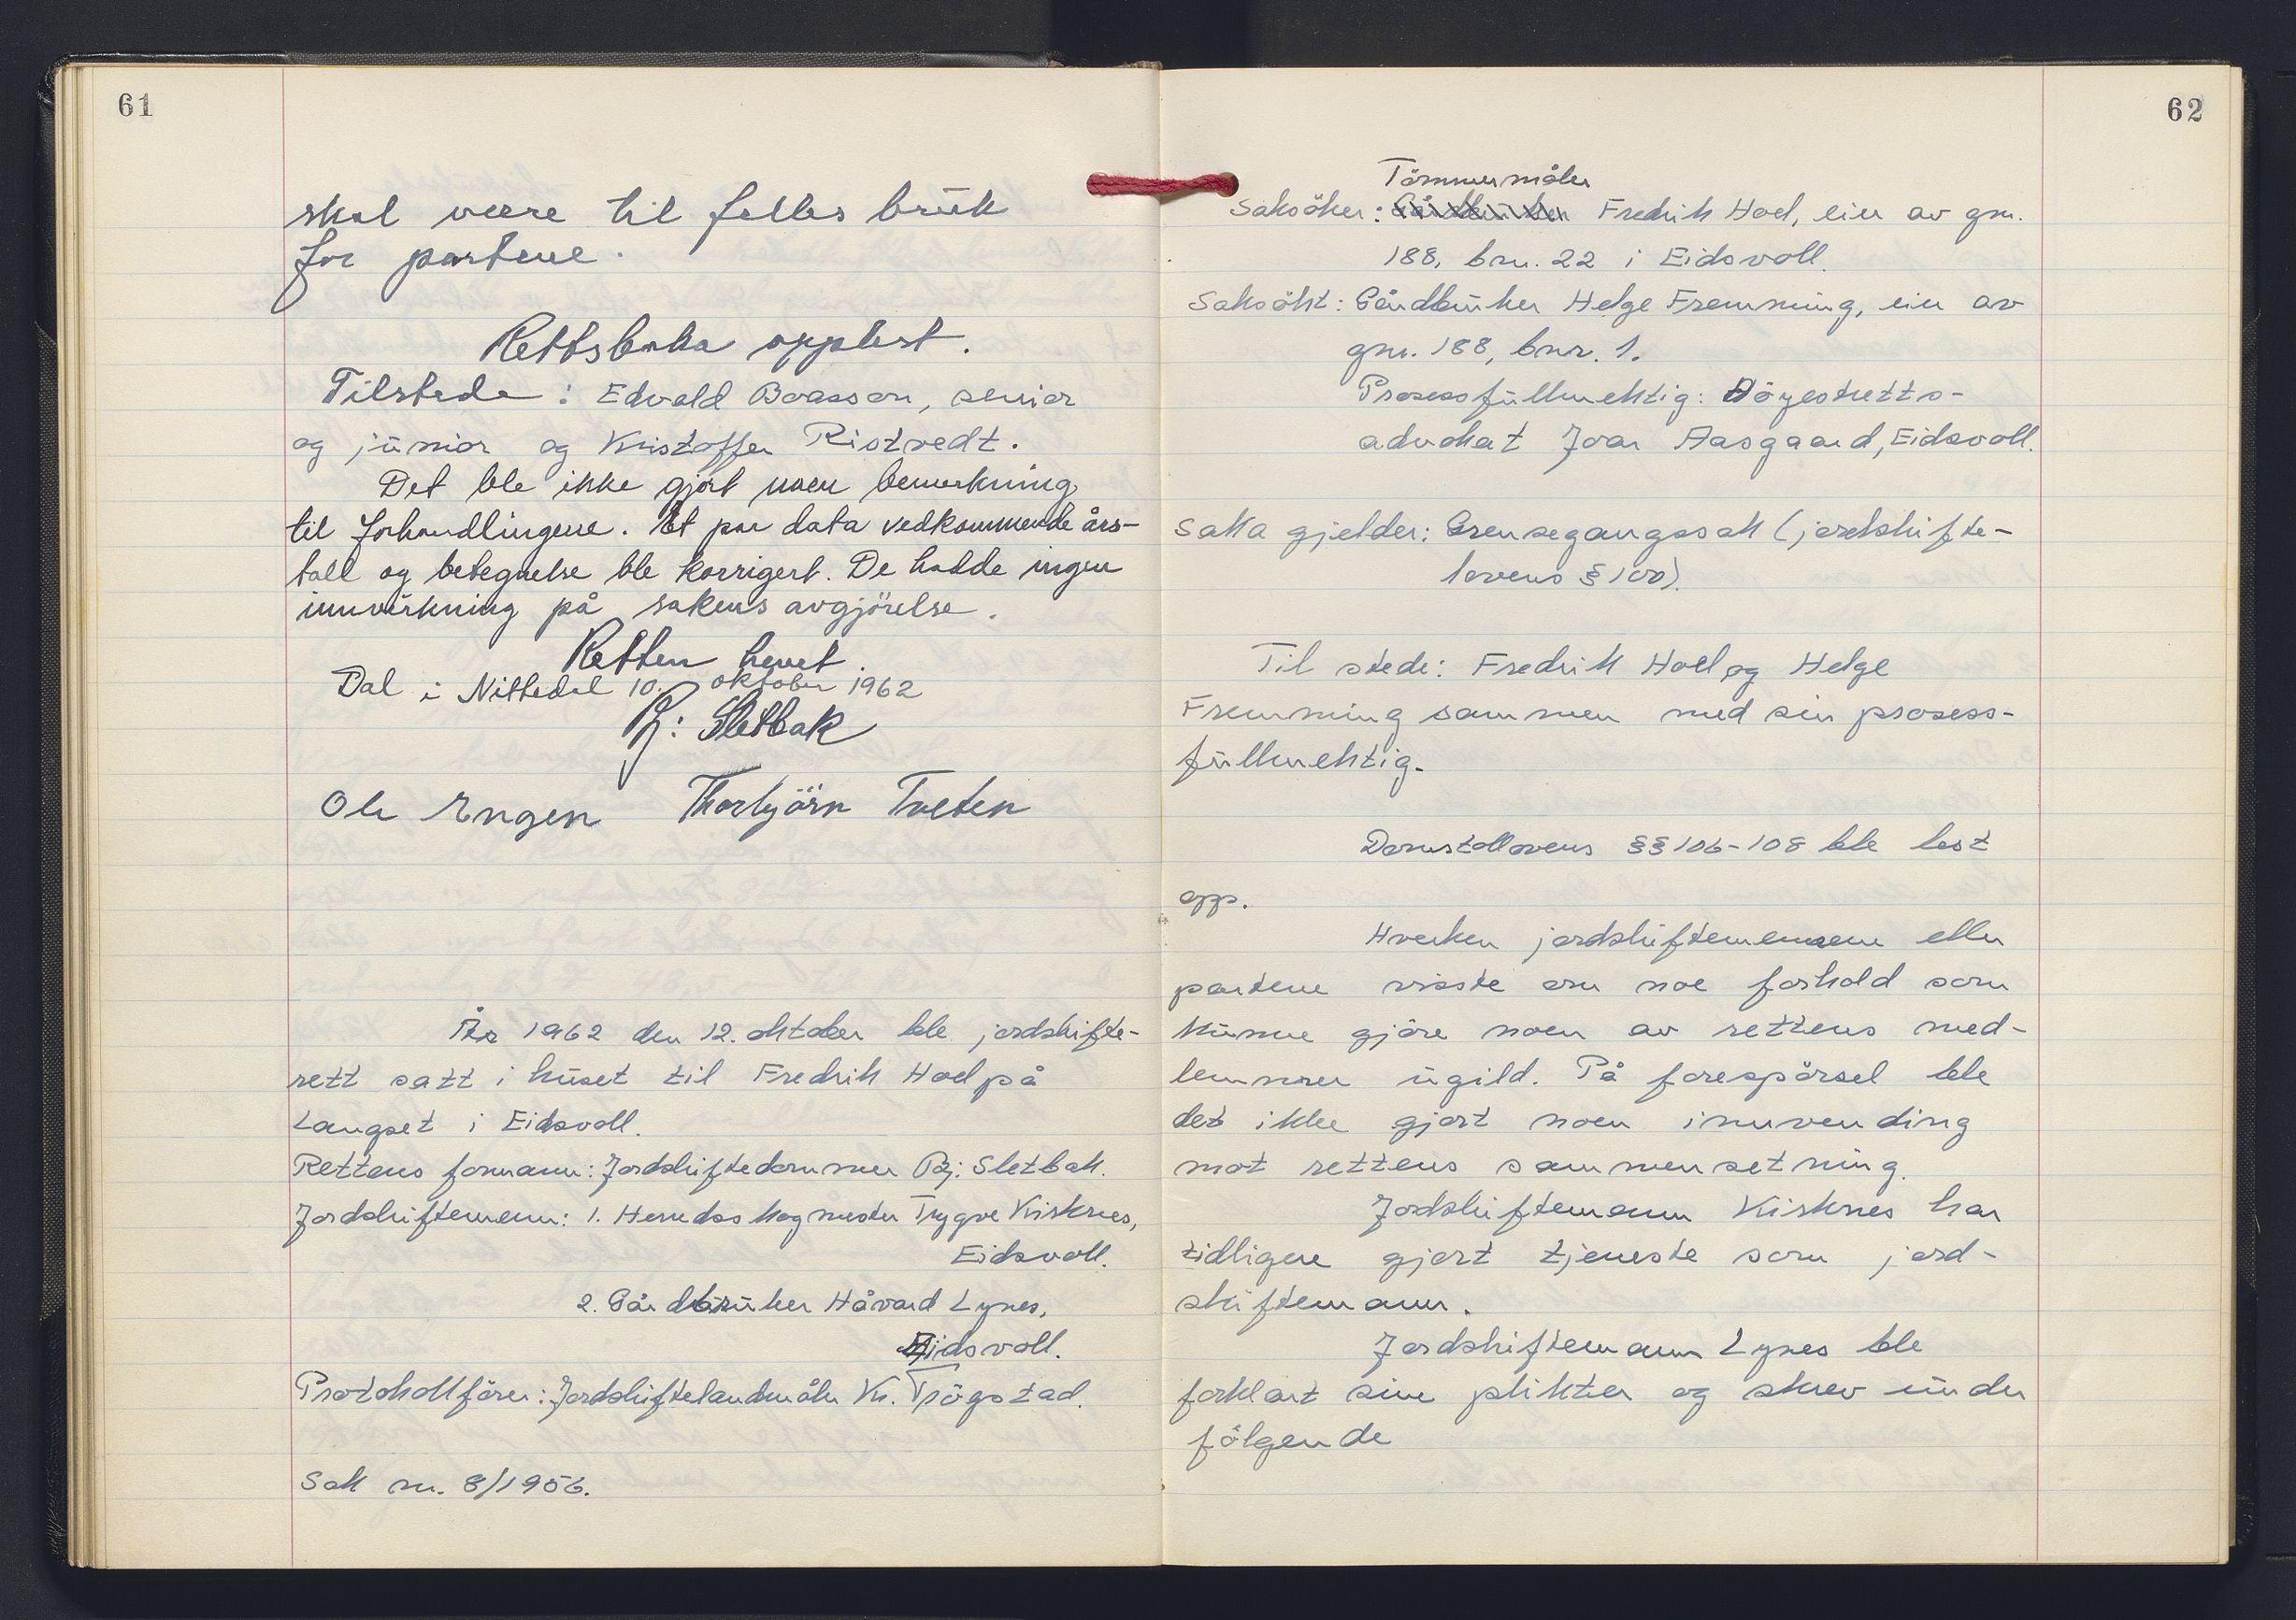 61
skal være til felles bruk
for partene.
Rettsboka opplest.
Tilstede: Edvald Boasson, senior
og junior og Kristoffer Ristvedt.
Det ble ikke gjort noen bemerkning
til forhandlingene. Et par data vedkommende års-
tall og betegnelse ble korrigert. De hadde ingen
innvirkning på sakens avgjörelse.
Retten hevet.
Dal i Nittedal 10. oktober 1962
Pj: Sletbak
Ole Engen Thorbjörn Tveten
År 1962 den 12. oktober ble jordskifte-
rett satt i huset til Fredrik Hoel på
Langset i Eidsvoll.
Rettens formann: Jordskiftedommer Pj: Sletbak.
Jordskiftemenn: 1. Herredsskogmester Trygve Kirknes,
Eidsvoll.
2. Gårdbruker Håvard Lynes,
Eidsvoll.
Protokollförer: Jordskiftelandmåler Kr. Trögstad.
Sak nr. 8/1956.
62
Tömmermåler
Saksöker: Gårdbruker Fredrik Hoel, eier av gnr.
188, bnr. 22 i Eidsvoll.
Saksökt: Gårdbruker Helge Fremming, eier av
gnr. 188, bnr. 1.
Prosessfullmektig: Höyestretts-
advokat Ivar Aasgaard, Eidsvoll.
Saka gjelder: Grensegangssak (jordskifte-
lovens § 100).
Til stede: Fredrik Hoel og Helge
Fremming sammen med sin prosess-
fullmektig.
Domstollovens §§ 106-108 ble lest
opp.
Hverken jordskiftemennene eller
partene visste om noe forhold som
kunne gjöre noen av rettens med-
lemmer ugild. På forespörsel ble
det ikke gjort noen innvending
mot rettens sammensetning.
Jordskiftemann Kirknes har
tidligere gjort tjeneste som jord-
skiftemann.
Jordskiftemann Lynes ble
forklart sine plikter og skrev under
fölgende